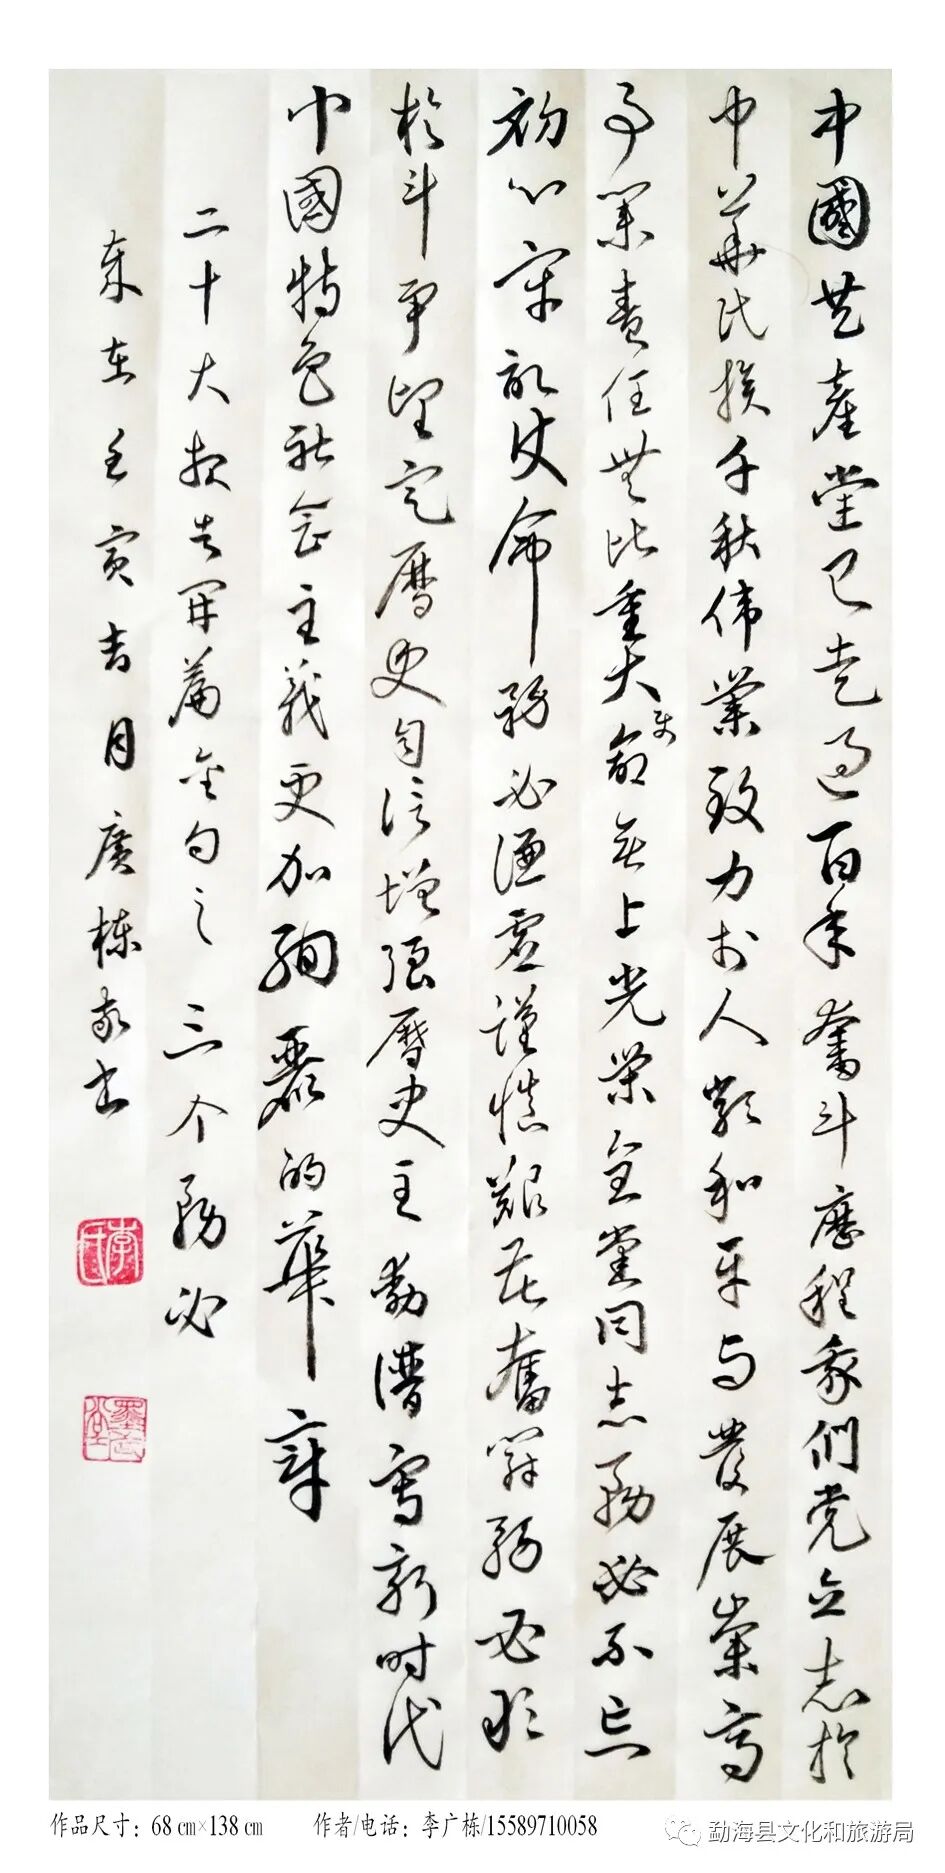 中國共產堂已走过百年奮斗歷程我們党立志於
中華民族千秋伟業致力于人類和平与發展崇高
事業责任無比重大使命無上光荣全党同志務必不忘
初心牢記使命務必謙虚謹慎艱苦奮鬥務必敢
於斗争堅定曆史自信增强曆史主動譜寫新时代
中國特色社会主義更加絢麗的華章
二十大报告开篇金句之 三个務必
岁在壬寅吉月廣栋敬书
李氏
作品尺寸：68 cm×138 cm 作者/电话：李广栋/15589710058
勐海县文化和旅游局